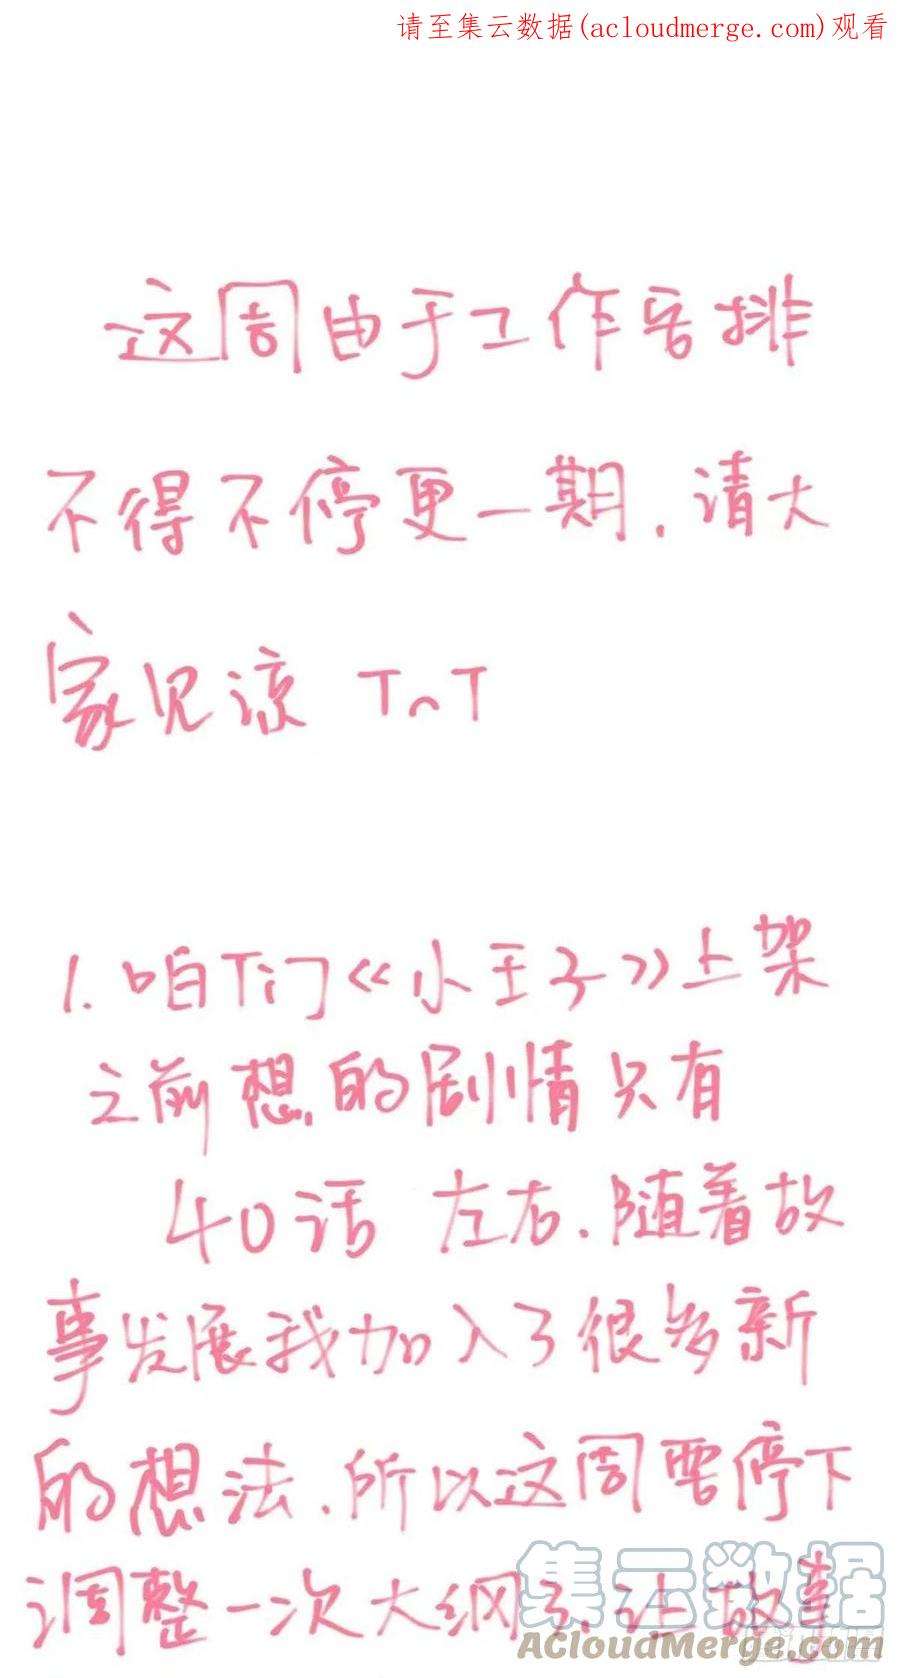 请至集云数据(acloudmerge.com)观看
这周由于工作安排
不得不停更一期,请大
家见谅 TnT
1.咱们《小王子》上架
之前想的剧情只有
40话 左右.随着故
事发展我加入了很多新
的想法.所以这周要停下
调整一次大纲 让故事
集云数据
ACloudMerge.com